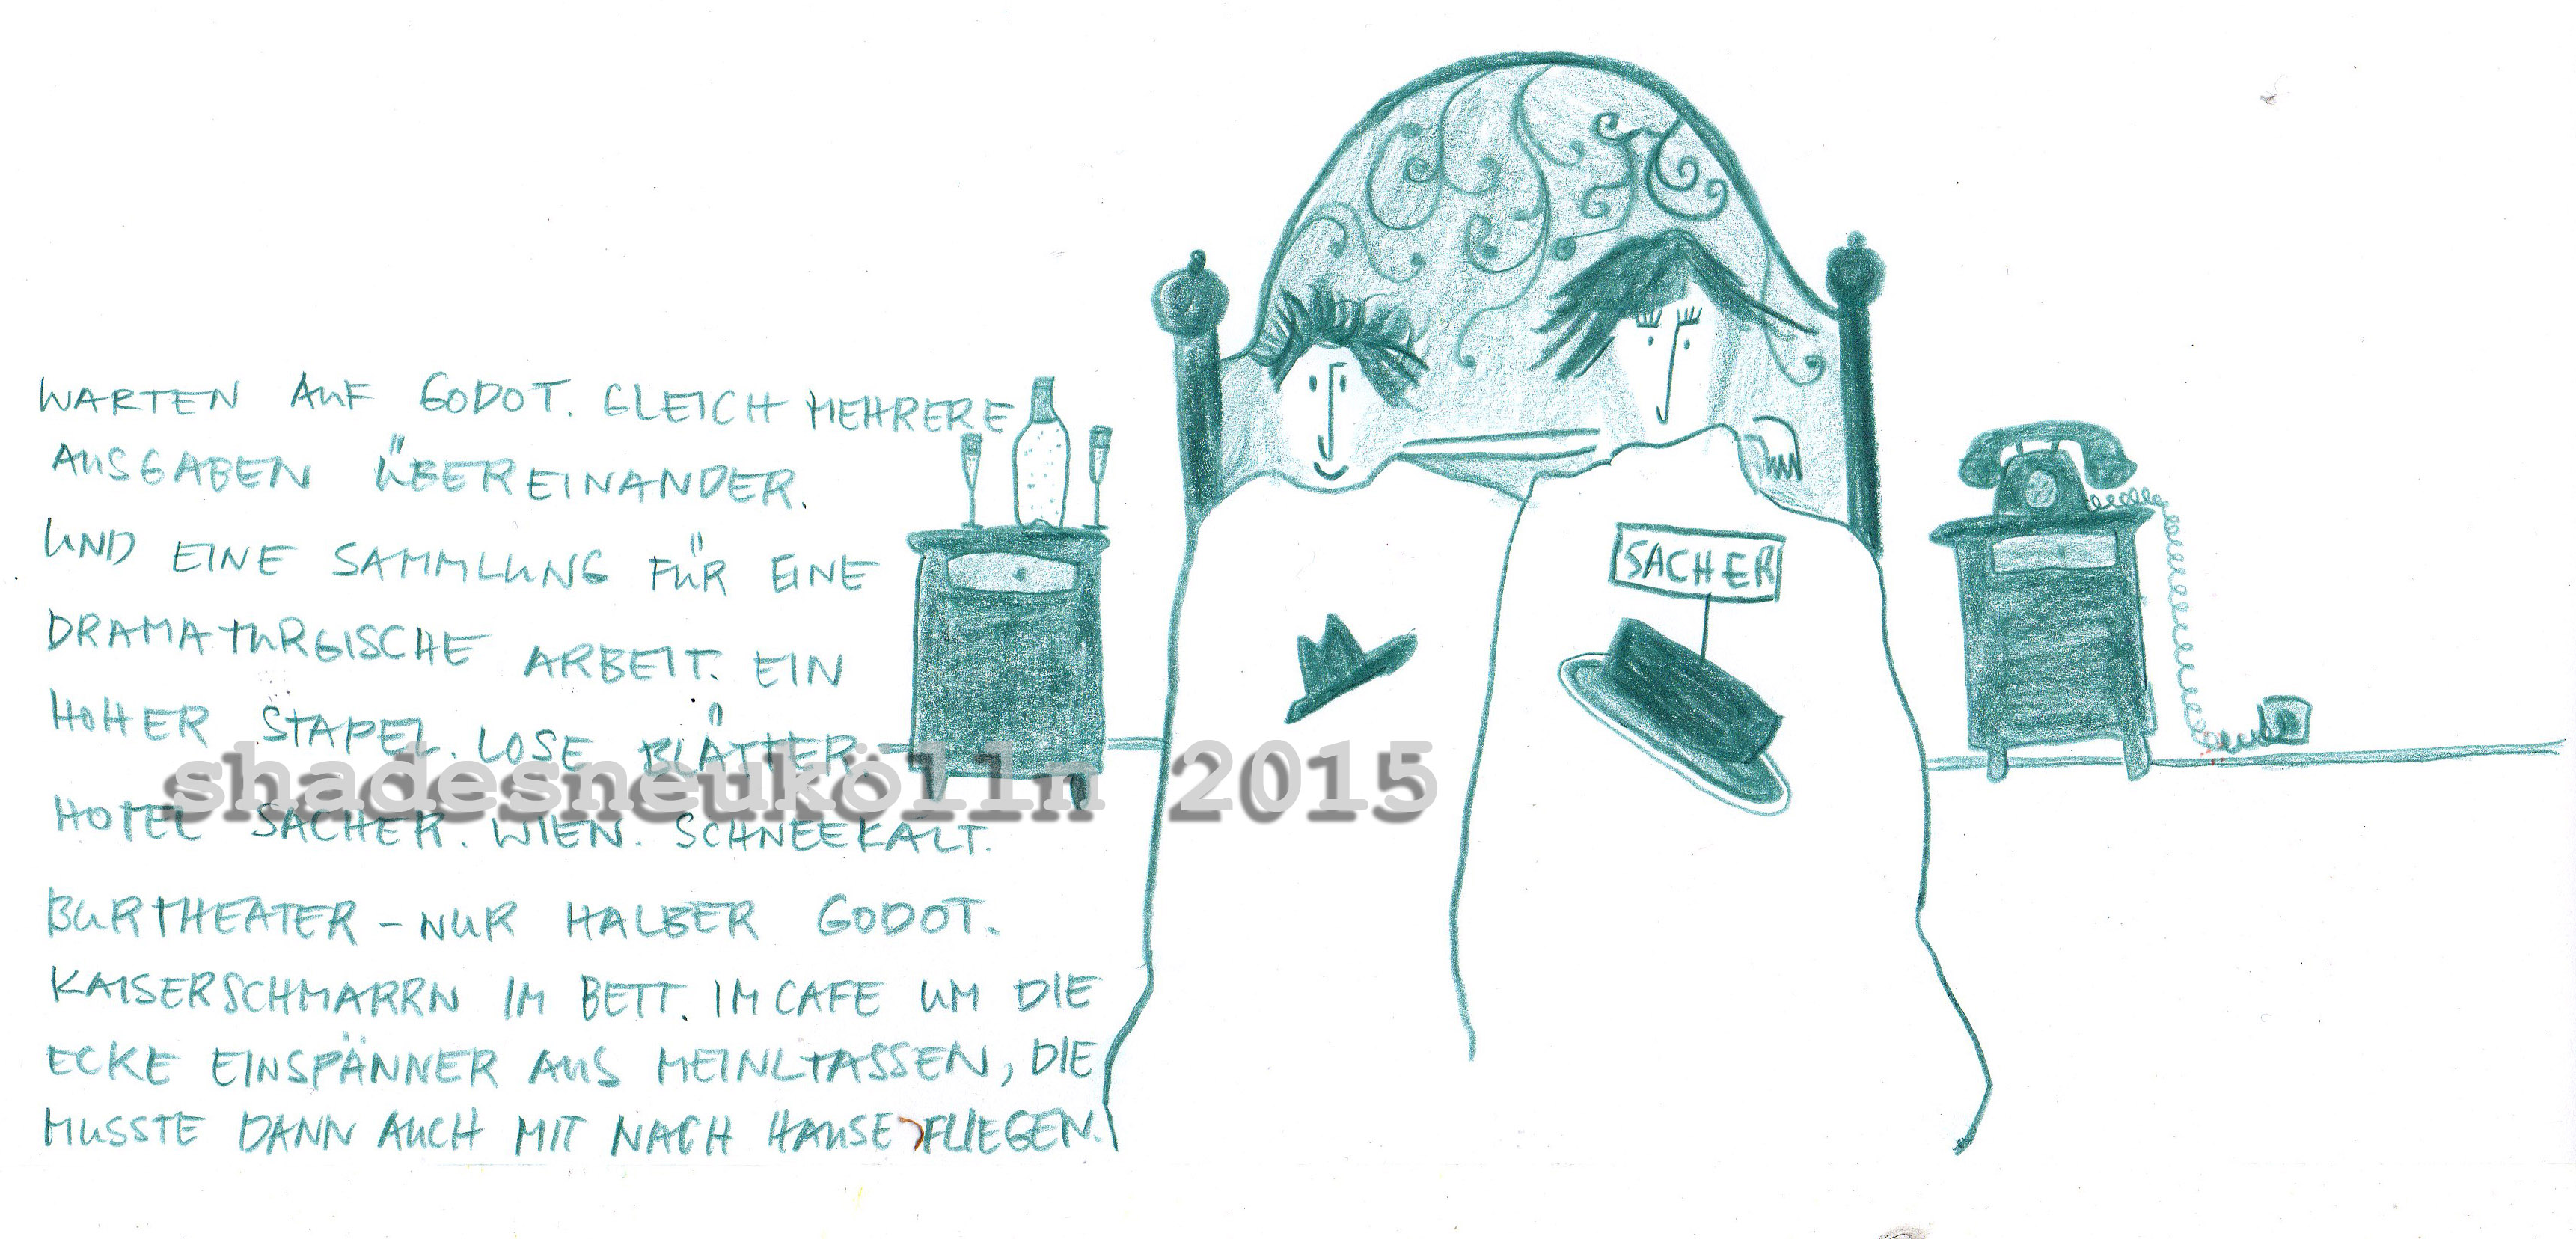 WARTEN AUF GODOT. GLEICH MEHRERE
AUSGABEN ÜBEREINANDER.
UND EINE SAMMLUNG FÜR EINE
DRAMATURGISCHE ARBEIT. EIN
HOHER STAPEL. LOSE BLÄTTER.
HOTEL SACHER. WIEN. SCHNEEKALT.
BURTHEATER – NUR HALBER GODOT.
KAISERSCHMARRN IM BETT. IM CAFE UM DIE
ECKE EINSPÄNNER AUS MEINLTASSEN, DIE
MUSSTE DANN AUCH MIT NACH HAUSE FLIEGEN.
SACHER
shadesneukölln 2015